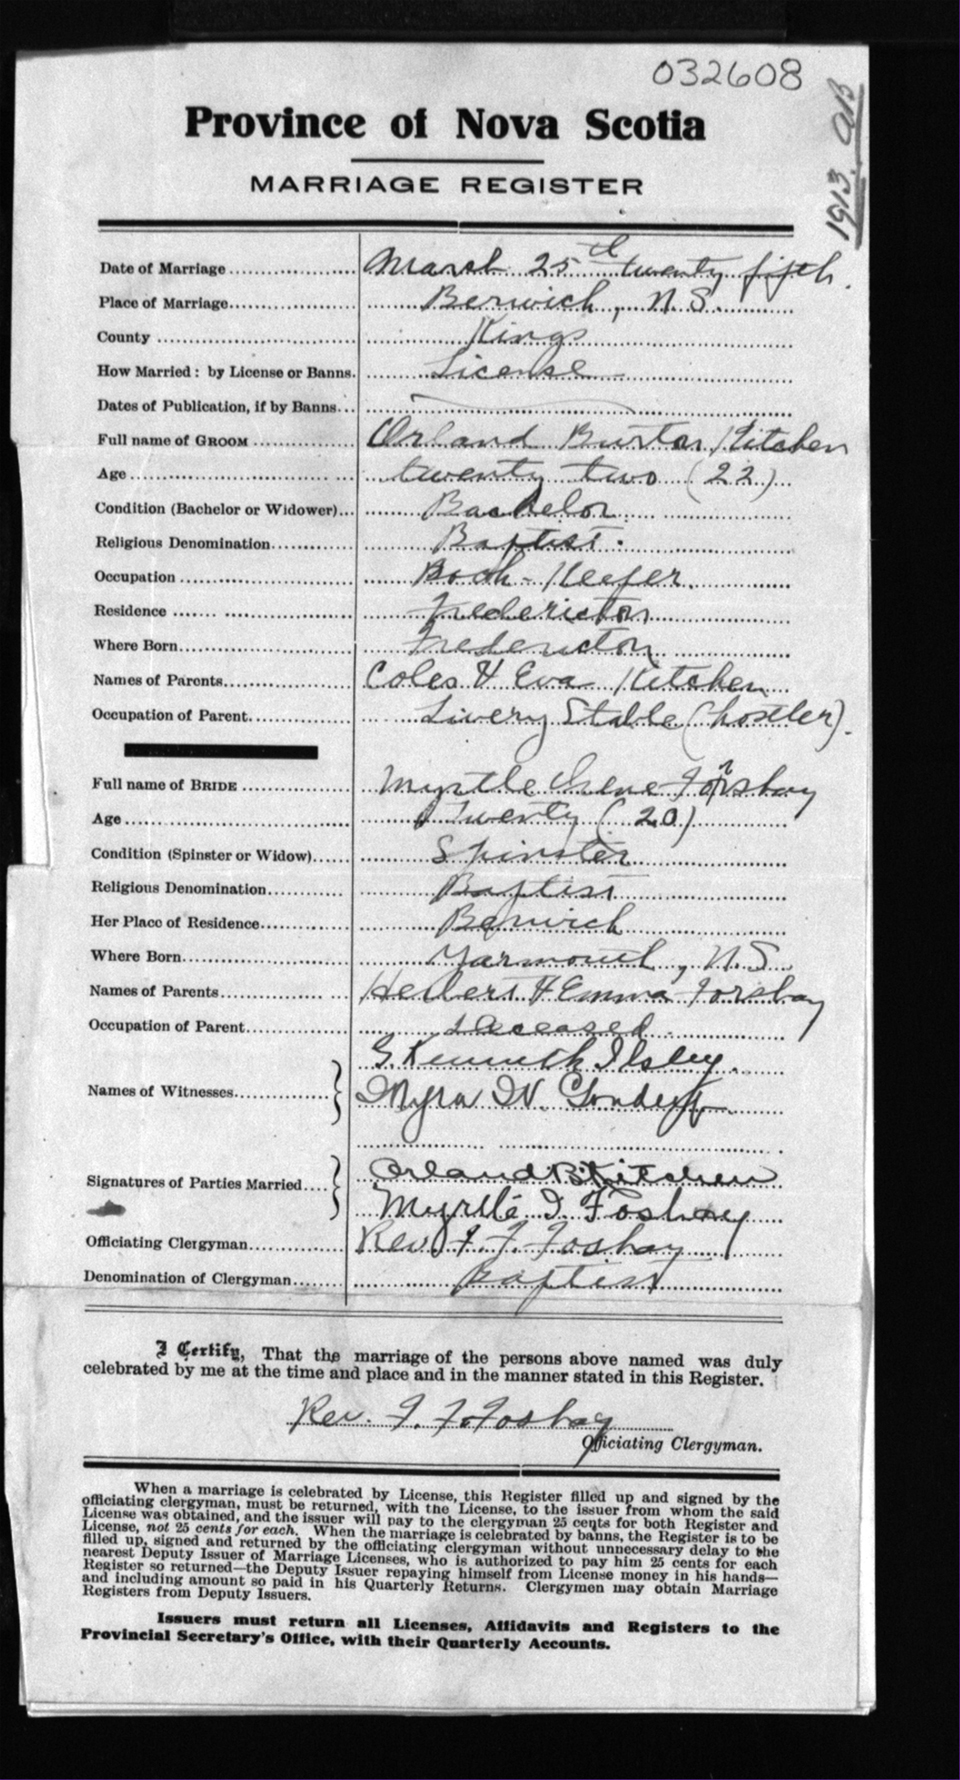 032608
1913. AB
Province of Nova Scotia
MARRIAGE REGISTER
Date of Marriage.................. March 25th twenty fifth.
Place of Marriage.................. Berwick, N.S.
County .................. Kings
How Married: by License or Banns. License
Dates of Publication, if by Banns...
Full name of GROOM .................. Orland Burton Kitchen
Age.................. twenty two (22)
Condition (Bachelor or Widower)... Bachelor
Religious Denomination.................. Baptist.
Occupation .................. Book-Keeper.
Residence .................. Fredericton
Where Born.................. Fredericton
Names of Parents.................. Coles & Eva Kitchen
Occupation of Parent.................. Livery Stable (hostler).
Full name of BRIDE .................. Myrtle Irene Forshay
Age.................. Twenty (20)
Condition (Spinster or Widow)..... Spinster
Religious Denomination.................. Baptist
Her Place of Residence.................. Berwick
Where Born.................. Yarmouth, N.S.
Names of Parents.................. Herbert & Emma Forshay
Occupation of Parent.................. deceased.
G. Kenneth Ilsley.
Names of Witnesses.................. Myra W.
Signatures of Parties Married.... Orland B. Kitchen
Myrtle I Foshay
Officiating Clergyman.................. Rev. F. F. Foshay
Denomination of Clergyman....... Baptist
I Certify, That the marriage of the persons above named was duly
celebrated by me at the time and place and in the manner stated in this Register.
Rev. F. F. Foshay
Officiating Clergyman.
When a marriage is celebrated by License, this Register filled up and signed by the
officiating clergyman, must be returned, with the License, to the issuer from whom the said
License was obtained, and the issuer will pay to the clergyman 25 cents for both Register and
License, not 25 cents for each. When the marriage is celebrated by banns, the Register is to be
filled up, signed and returned by the officiating clergyman without unnecessary delay to the
nearest Deputy Issuer of Marriage Licenses, who is authorized to pay him 25 cents for each
Register so returned—the Deputy Issuer repaying himself from License money in his hands—
and including amount so paid in his Quarterly Returns. Clergymen may obtain Marriage
Registers from Deputy Issuers.
Issuers must return all Licenses, Affidavits and Registers to the
Provincial Secretary's Office, with their Quarterly Accounts.